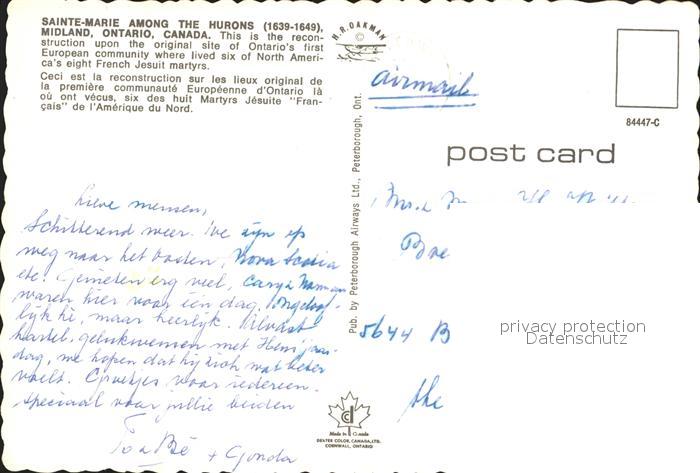 SAINTE-MARIE AMONG THE HURONS (1639-1649),
MIDLAND, ONTARIO, CANADA. This is the recon-
struction upon the original site of Ontario's first
European community where lived six of North Ameri-
ca's eight French Jesuit martyrs.
Ceci est la reconstruction sur les lieux original de
la première communauté Européenne d'Ontario là
où ont vécus, six des huit Martyrs Jésuite "Fran-
çais" de l'Amérique du Nord.
H.R. OAKMAN
airmail
84447-C
post card
Pub. by Peterborough Airways Ltd., Peterborough, Ont.
Lieve mensen,
Schitterend weer. We zijn op
weg naar het oosten, Nova Scotia
etc. Genieten erg veel, Caryn Norman
waren hier voor één dag. Ongeloof-
lijk hè, maar heerlijk. Alvast
hartel. gelukwensen met Henj jaar-
dag, we hopen dat hij zich wat beter
voelt. Groetjes voor iedereen.
speciaal voor jullie beiden
+ Gonda
5644 B
the
privacy protection
Datenschutz
Made in Canada
DEXTER COLOR, CANADA, LTD.
CORNWALL, ONTARIO